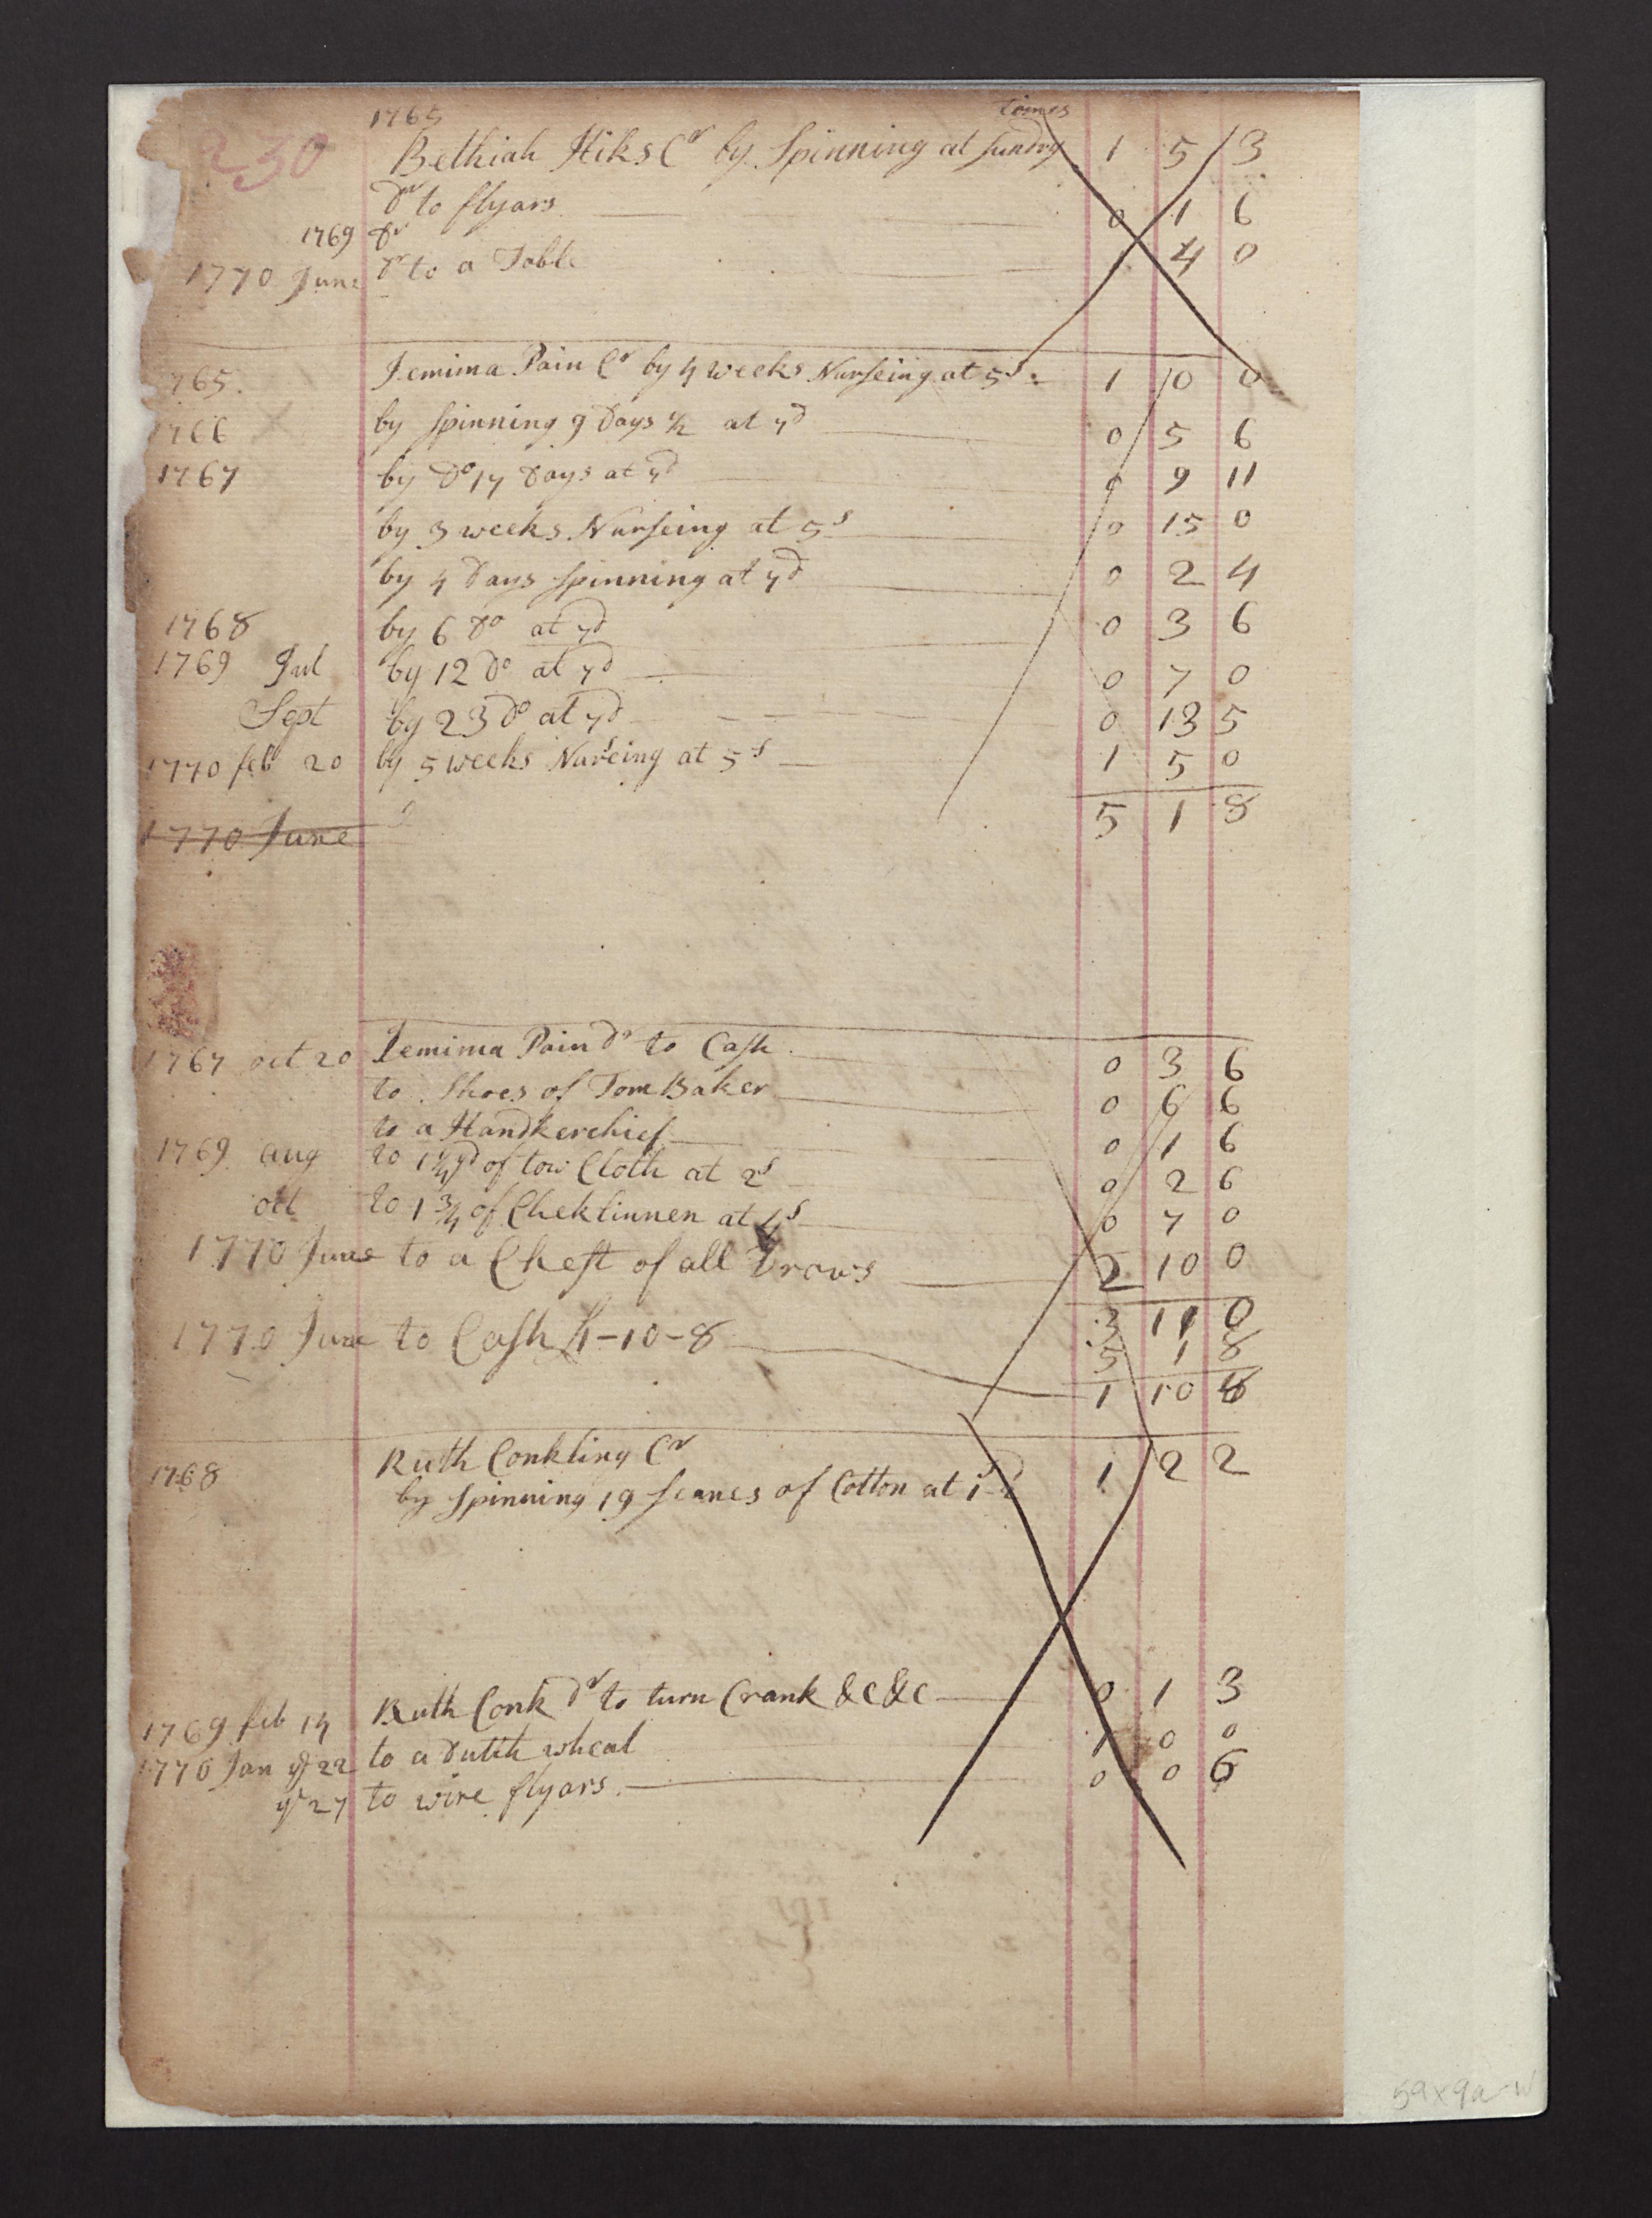 230
1765
times
Bethiah Hiks Cr by Spinning at Sundry 1 5 3
Dr to flyars 0 1 6
1769 Dr
1770 June Dr to a Table 4 0
1765 Jemima Pain Cr by 4 weeks Nurseing at 5s 1 0 0
1766 by Spinning 9 Days ½ at 7d 0 5 6
1767 by Do 17 Days at 7d 0 9 11
by 3 weeks Nurseing at 5s 0 15 0
by 4 Days Spinning at 7d 0 2 4
1768 by 6 Do at 7d 0 3 6
1769 Jul by 12 Do at 7d 0 7 0
Sept by 23 Do at 7d 0 13 5
1770 feb 20 by 5 weeks Nurseing at 5s 1 5 0
1770 June 5 1 8
1767 oct 20 Jemima Pain Dr to Cash 0 3 6
to Shoes of Tom Baker 0 6 6
to a Handkerchief 0 1 6
1769 aug to 1¼ yd of tow Cloth at 2s 0 2 6
oct to 1¾ of Cheklinnen at 4s 0 7 0
1770 June to a Chest of all Draws 2 10 0
3 11 0
1770 June to Cash £1-10-8 5 1 8
1 10 8
1768 Ruth Conkling Cr
by Spinning 19 scanes of Cotton at 1 2 1 2 2
1769 feb 14 Ruth Conk Dr to turn Crank &c &c 0 1 3
1770 Jan ye 22 to a Dutch wheal 1 0 0
ye 27 to wire flyars 0 0 6
59x9a-w